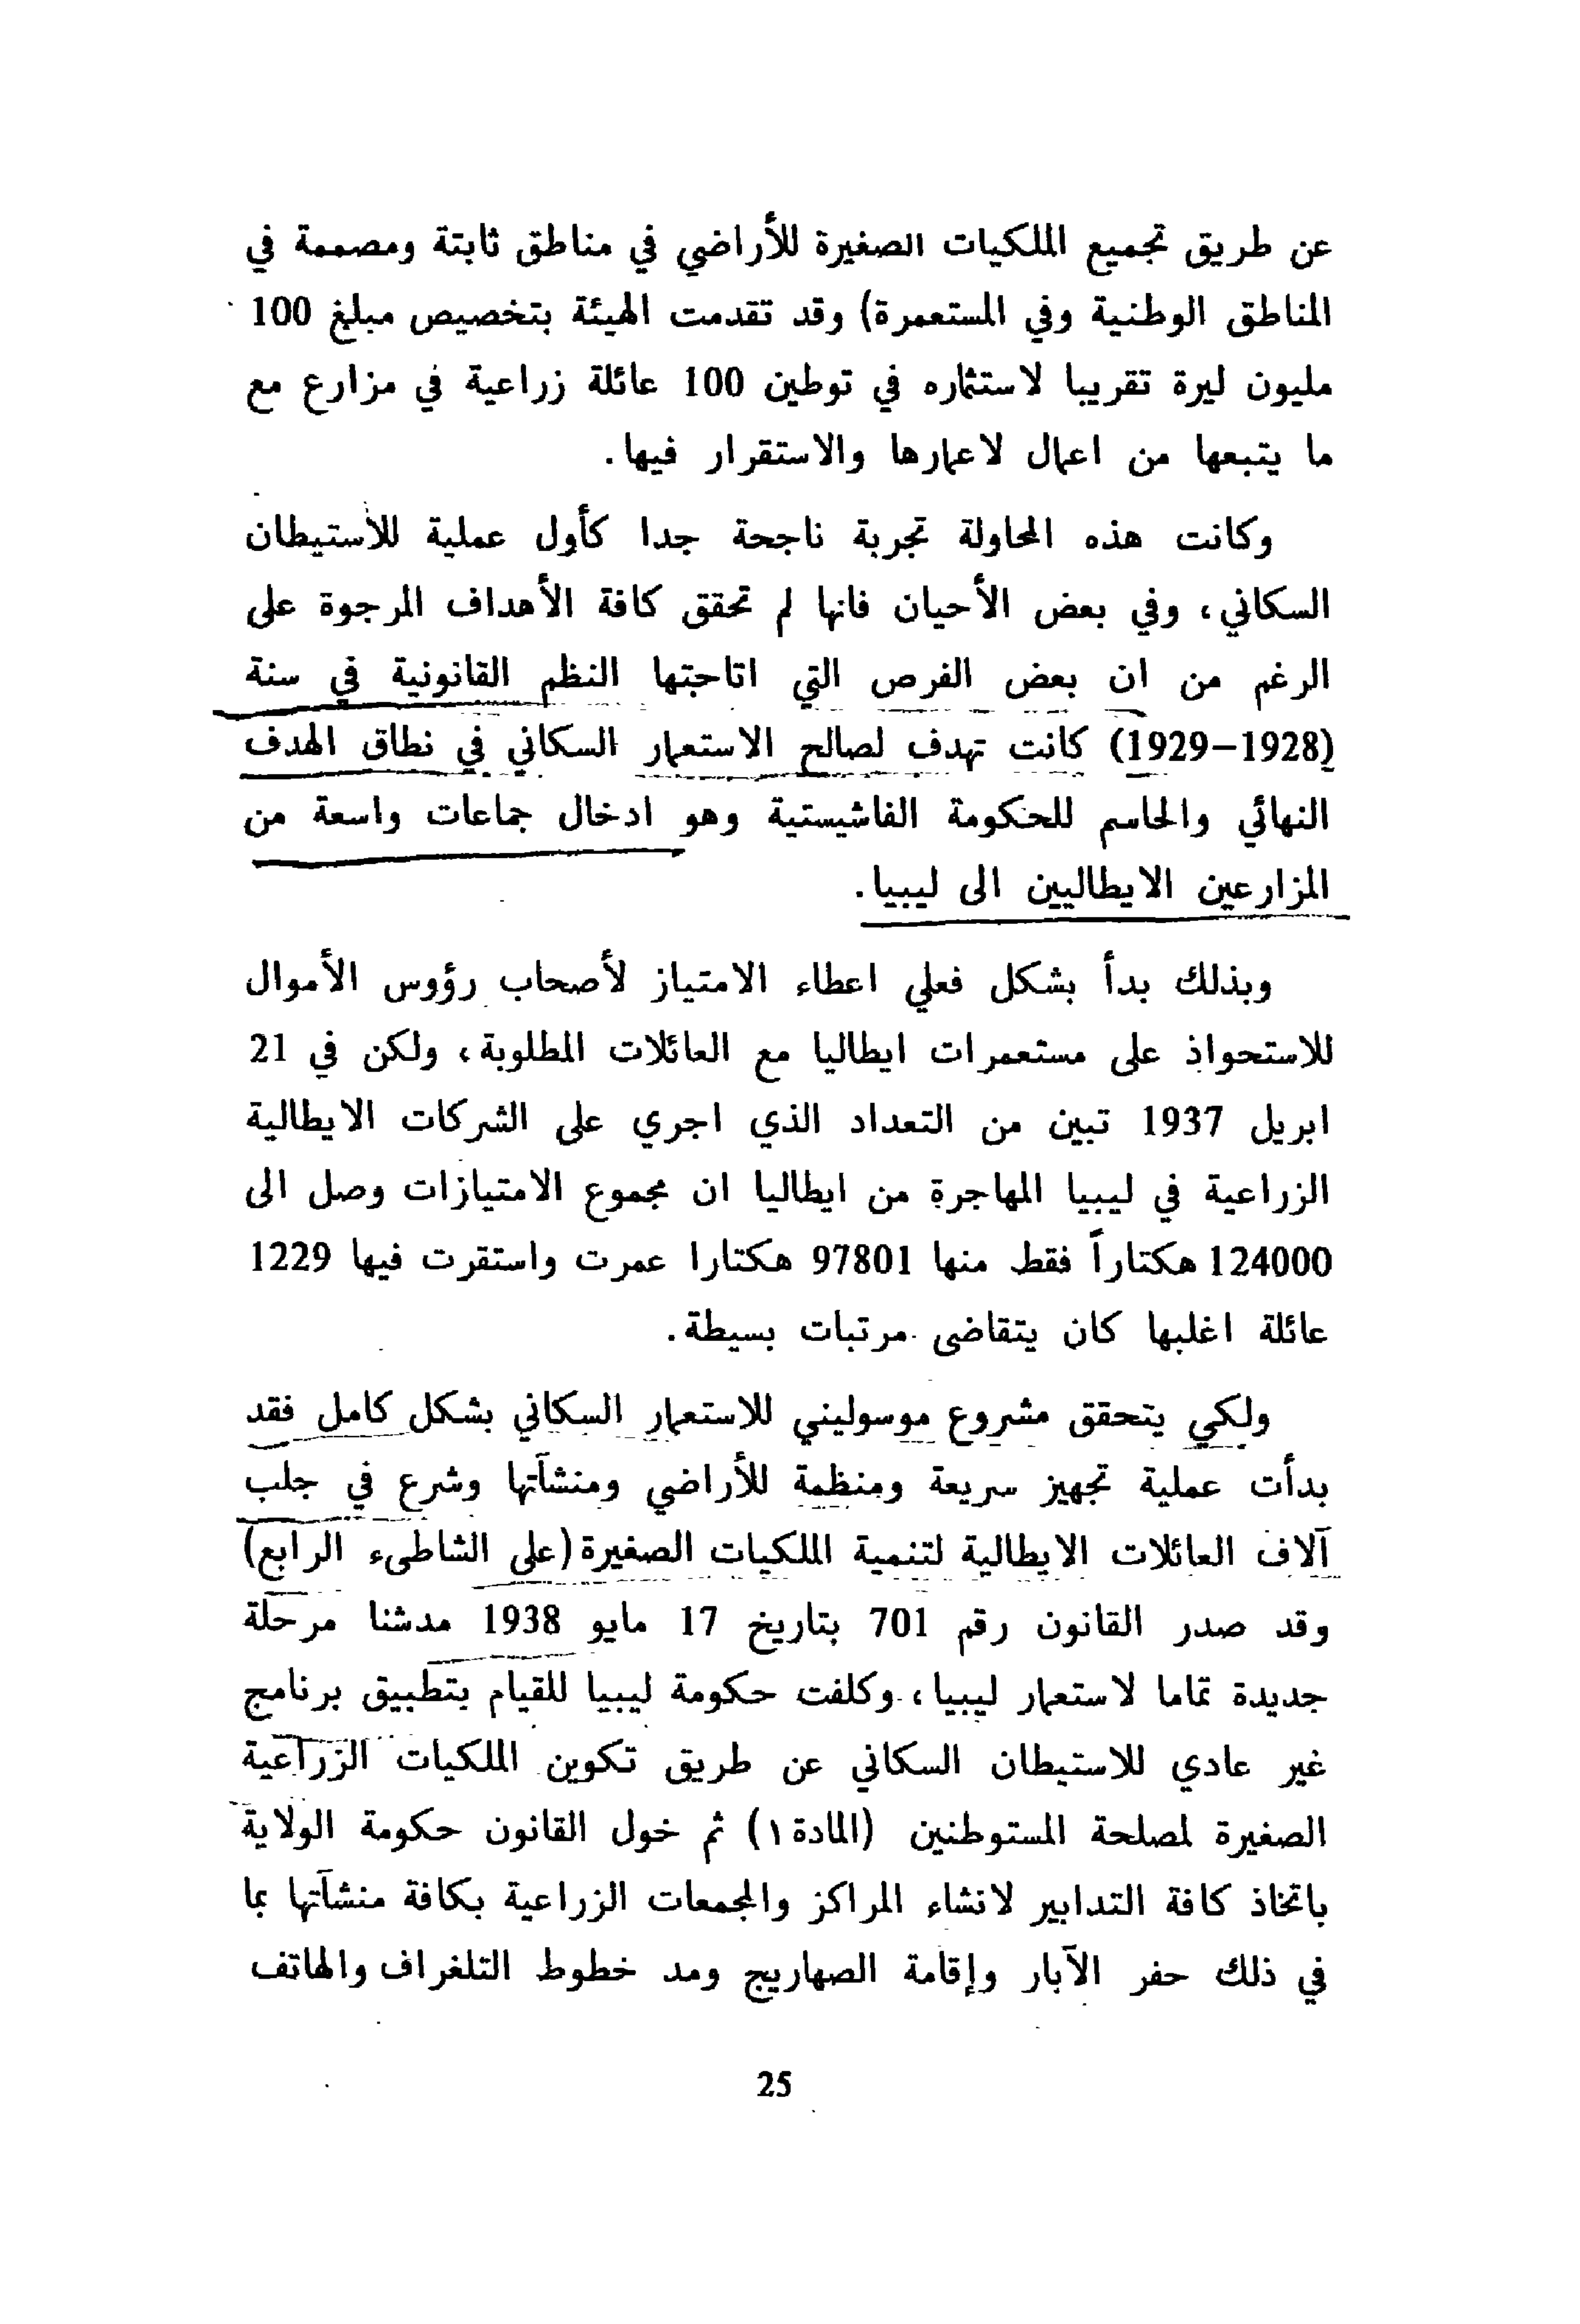 عن طريق تجميع الملكيات الصغيرة للأراضي في مناطق ثابتة ومصممة في
المناطق الوطنية وفي المستعمرة) وقد تقدمت الهيئة بتخصيص مبلغ 100
مليون ليرة تقريبا لاستثماره في توطين 100 عائلة زراعية في مزارع مع
ما يتبعها من اعمال لاعمارها والاستقرار فيها.
وكانت هذه المحاولة تجربة ناجحة جدا كأول عملية للأستيطان
السكاني، وفي بعض الأحيان فانها لم تحقق كافة الأهداف المرجوة على
الرغم من ان بعض الفرص التي اتاحتها النظم القانونية في سنة
(1928-1929) كانت تهدف لصالح الاستعمار السكاني في نطاق الهدف
النهائي والحاسم للحكومة الفاشيستية وهو ادخال جماعات واسعة من
المزارعين الايطاليين الى ليبيا.
وبذلك بدأ بشكل فعلي اعطاء الامتياز لأصحاب رؤوس الأموال
للاستحواذ على مستعمرات ايطاليا مع العائلات المطلوبة، ولكن في 21
ابريل 1937 تبين من التعداد الذي اجري على الشركات الايطالية
الزراعية في ليبيا المهاجرة من ايطاليا ان مجموع الامتيازات وصل الى
124000 هكتاراً فقط منها 97801 هكتارا عمرت واستقرت فيها 1229
عائلة اغلبها كان يتقاضى مرتبات بسيطة.
ولكي يتحقق مشروع موسوليني للاستعمار السكاني بشكل كامل فقد
بدأت عملية تجهيز سريعة ومنظمة للأراضي ومنشآتها وشرع في جلب
آلاف العائلات الايطالية لتنمية الملكيات الصغيرة (على الشاطىء الرابع)
وقد صدر القانون رقم 701 بتاريخ 17 مايو 1938 مدشنا مرحلة
جديدة تماما لاستعمار ليبيا، وكلفت حكومة ليبيا للقيام بتطبيق برنامج
غير عادي للاستيطان السكاني عن طريق تكوين الملكيات الزراعية
الصغيرة لمصلحة المستوطنين (المادة ١) ثم خول القانون حكومة الولاية
باتخاذ كافة التدابير لانشاء المراكز والمجمعات الزراعية بكافة منشآتها بما
في ذلك حفر الآبار وإقامة الصهاريج ومد خطوط التلغراف والهاتف
25